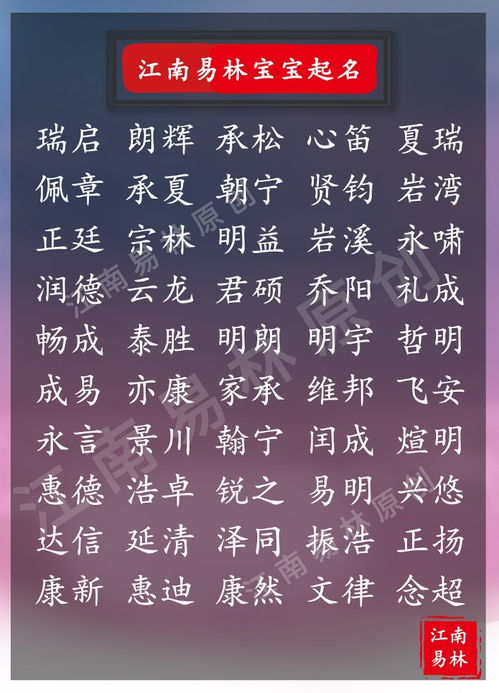 江南易林宝宝起名
瑞启 朗辉 承松 心笛 夏瑞
佩章 承夏 朝宁 贤钧 岩湾
正廷 宗林 明益 岩溪 永啸
润德 云龙 君硕 乔阳 礼成
畅成 泰胜 明朗 明宇 哲明
成易 亦康 家承 维邦 飞安
永言 景川 翰宁 闰成 煊明
惠德 浩卓 锐之 易明 兴悠
达信 延清 泽同 振浩 正扬
康新 惠迪 康然 文律 念超
江南易林原创
江南易林原创
江南易林原创
江南
易林